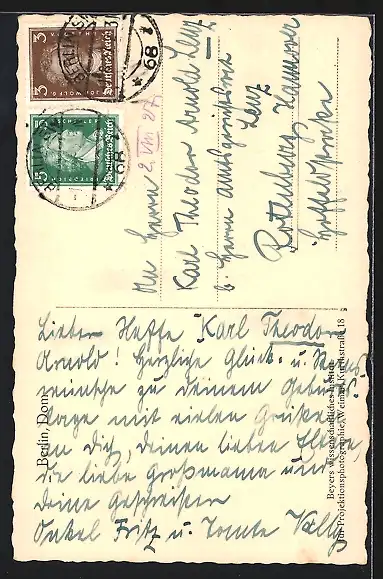 3
3
Deutsches Reich
5
5
Deutsches Reich
FRIEDRICH
68
An Herrn 2. VIII 27
Karl Theodor Arnold Lenz
b. Herrn Amtsgerichtsrat
Lenz
Rotenburg Hannover
Lieber Neffe Karl Theodor
Arnold! Herzliche Glück- u. Segens-
wünsche zu Deinem Geburts-
tage mit vielen Grüßen
an Dich, Deinen lieben Eltern,
die liebe Großmama und
Deine Geschwister
Onkel Fritz u. Tante Vally
Berlin, Dom
Beyers wissenschaftliches Institut
für Projektionsphotographie, Weimar, 18